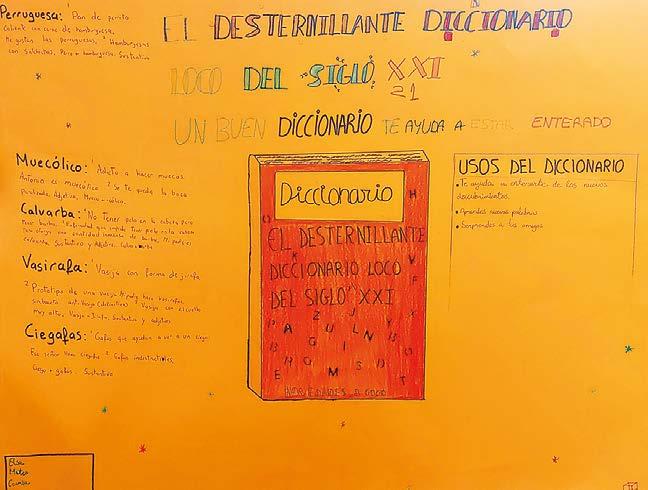 Perruguesa: ¹ Pan de perrito
caliente con carne de hamburguesa.
Me gustan las perruguesas. ² Hamburguesas
con salchichas. Perro + hamburguesa. Sustantivo
EL DESTERNILLANTE DICCIONARIO
LOCO DEL SIGLO XXI
21
UN BUEN DICCIONARIO TE AYUDA A ESTAR ENTERADO
Muecólico: ¹ Adicto a hacer muecas.
Antonio es muecólico ² Se te queda la boca
paralizada. Adjetivo. Mueca - cólico.
Calvarba: ¹ No tener pelo en la cabeza pero
tener barba. ² que impide tener pelo en la cabeza
una cantidad inmensa de barba. Mi padre es
calvarba. Sustantivo y Adjetivo. Calvo + barba
Vasirafa: ¹ Vasija con forma de jirafa
² Prototipo de una vasija. hace vasirafas.
Vasija con el cuello
muy alto. Vasija + Jirafa. Sustantivo y adjetivo
Ciegafas: ¹ Gafas que ayudan a ver a un ciego.
Ese señor lleva ciegafas ² Gafas indestructibles.
Ciego + gafas. Sustantivo
Diccionario
EL DESTERNILLANTE
DICCIONARIO LOCO
DEL SIGLO XXI
NOVEDADES A 6000
USOS DEL DICCIONARIO
• Te ayuda a enterarte de los nuevos
descubrimientos.
• Aprendes nuevas palabras
• Sorprendes a tus amigos
Elisa
Mateo